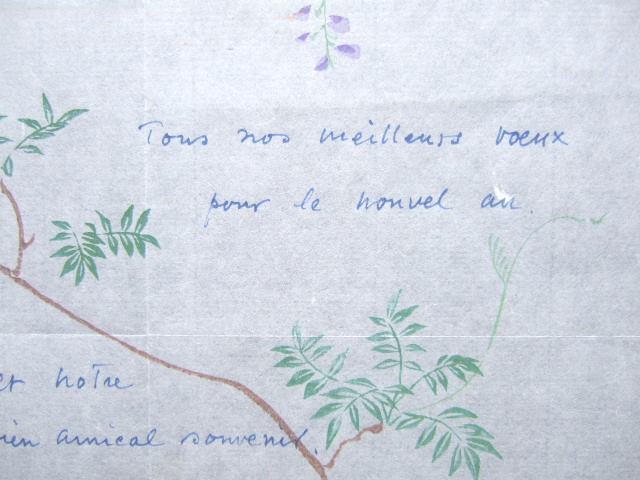 Tous nos meilleurs vœux
pour le nouvel an.
et notre
bien amical souvenir.